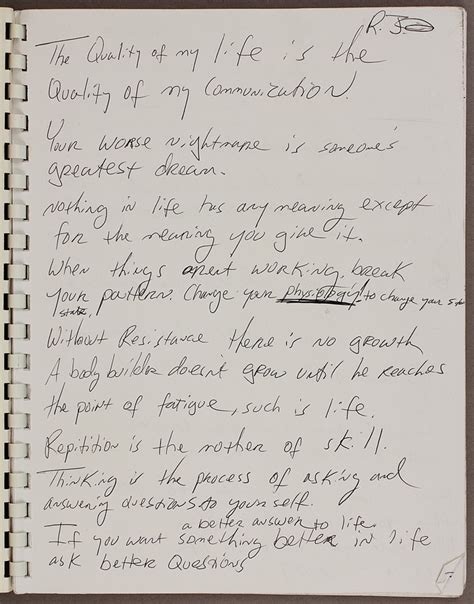 R. S.
The Quality of my life is the
Quality of my Communization.
Your worse nightmare is someone's
greatest dream.
nothing in life has any meaning except
for the meaning you give it.
When things arent working, break
your pattern. Change your physiology to change your
state,
Without Resistance there is no growth
A body builder doesn't grow until he reaches
the point of fatigue, such is life.
Repitition is the mother of skill.
Thinking is the process of asking and
answering questions to yourself.
a better answer to life
If you want something better in life
ask better Questions